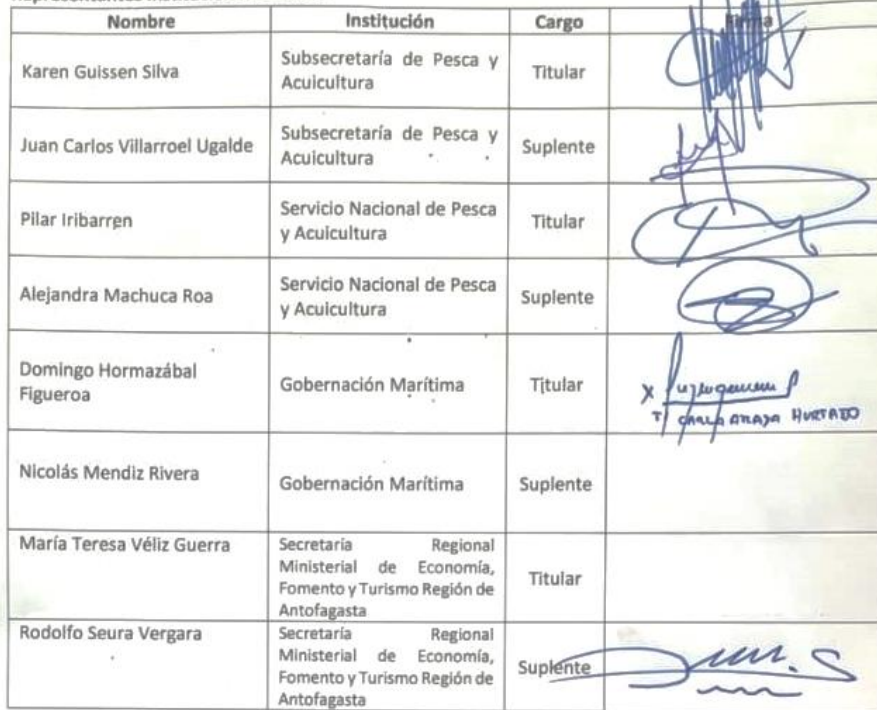 Nombre Institución Cargo Firma
Karen Guissen Silva
Subsecretaría de Pesca y
Acuicultura
Titular
Juan Carlos Villarroel Ugalde
Subsecretaría de Pesca y
Acuicultura
Suplente
Pilar Iribarren
Servicio Nacional de Pesca
y Acuicultura
Titular
Alejandra Machuca Roa
Servicio Nacional de Pesca
y Acuicultura
Suplente
Domingo Hormazábal
Figueroa
Gobernación Marítima
Titular
X
CARLA ARAYA HURTADO
Nicolás Mendiz Rivera
Gobernación Marítima
Suplente
María Teresa Véliz Guerra
Secretaría Regional
Ministerial de Economía,
Fomento y Turismo Región de
Antofagasta
Titular
Rodolfo Seura Vergara
Secretaría Regional
Ministerial de Economía,
Fomento y Turismo Región de
Antofagasta
Suplente